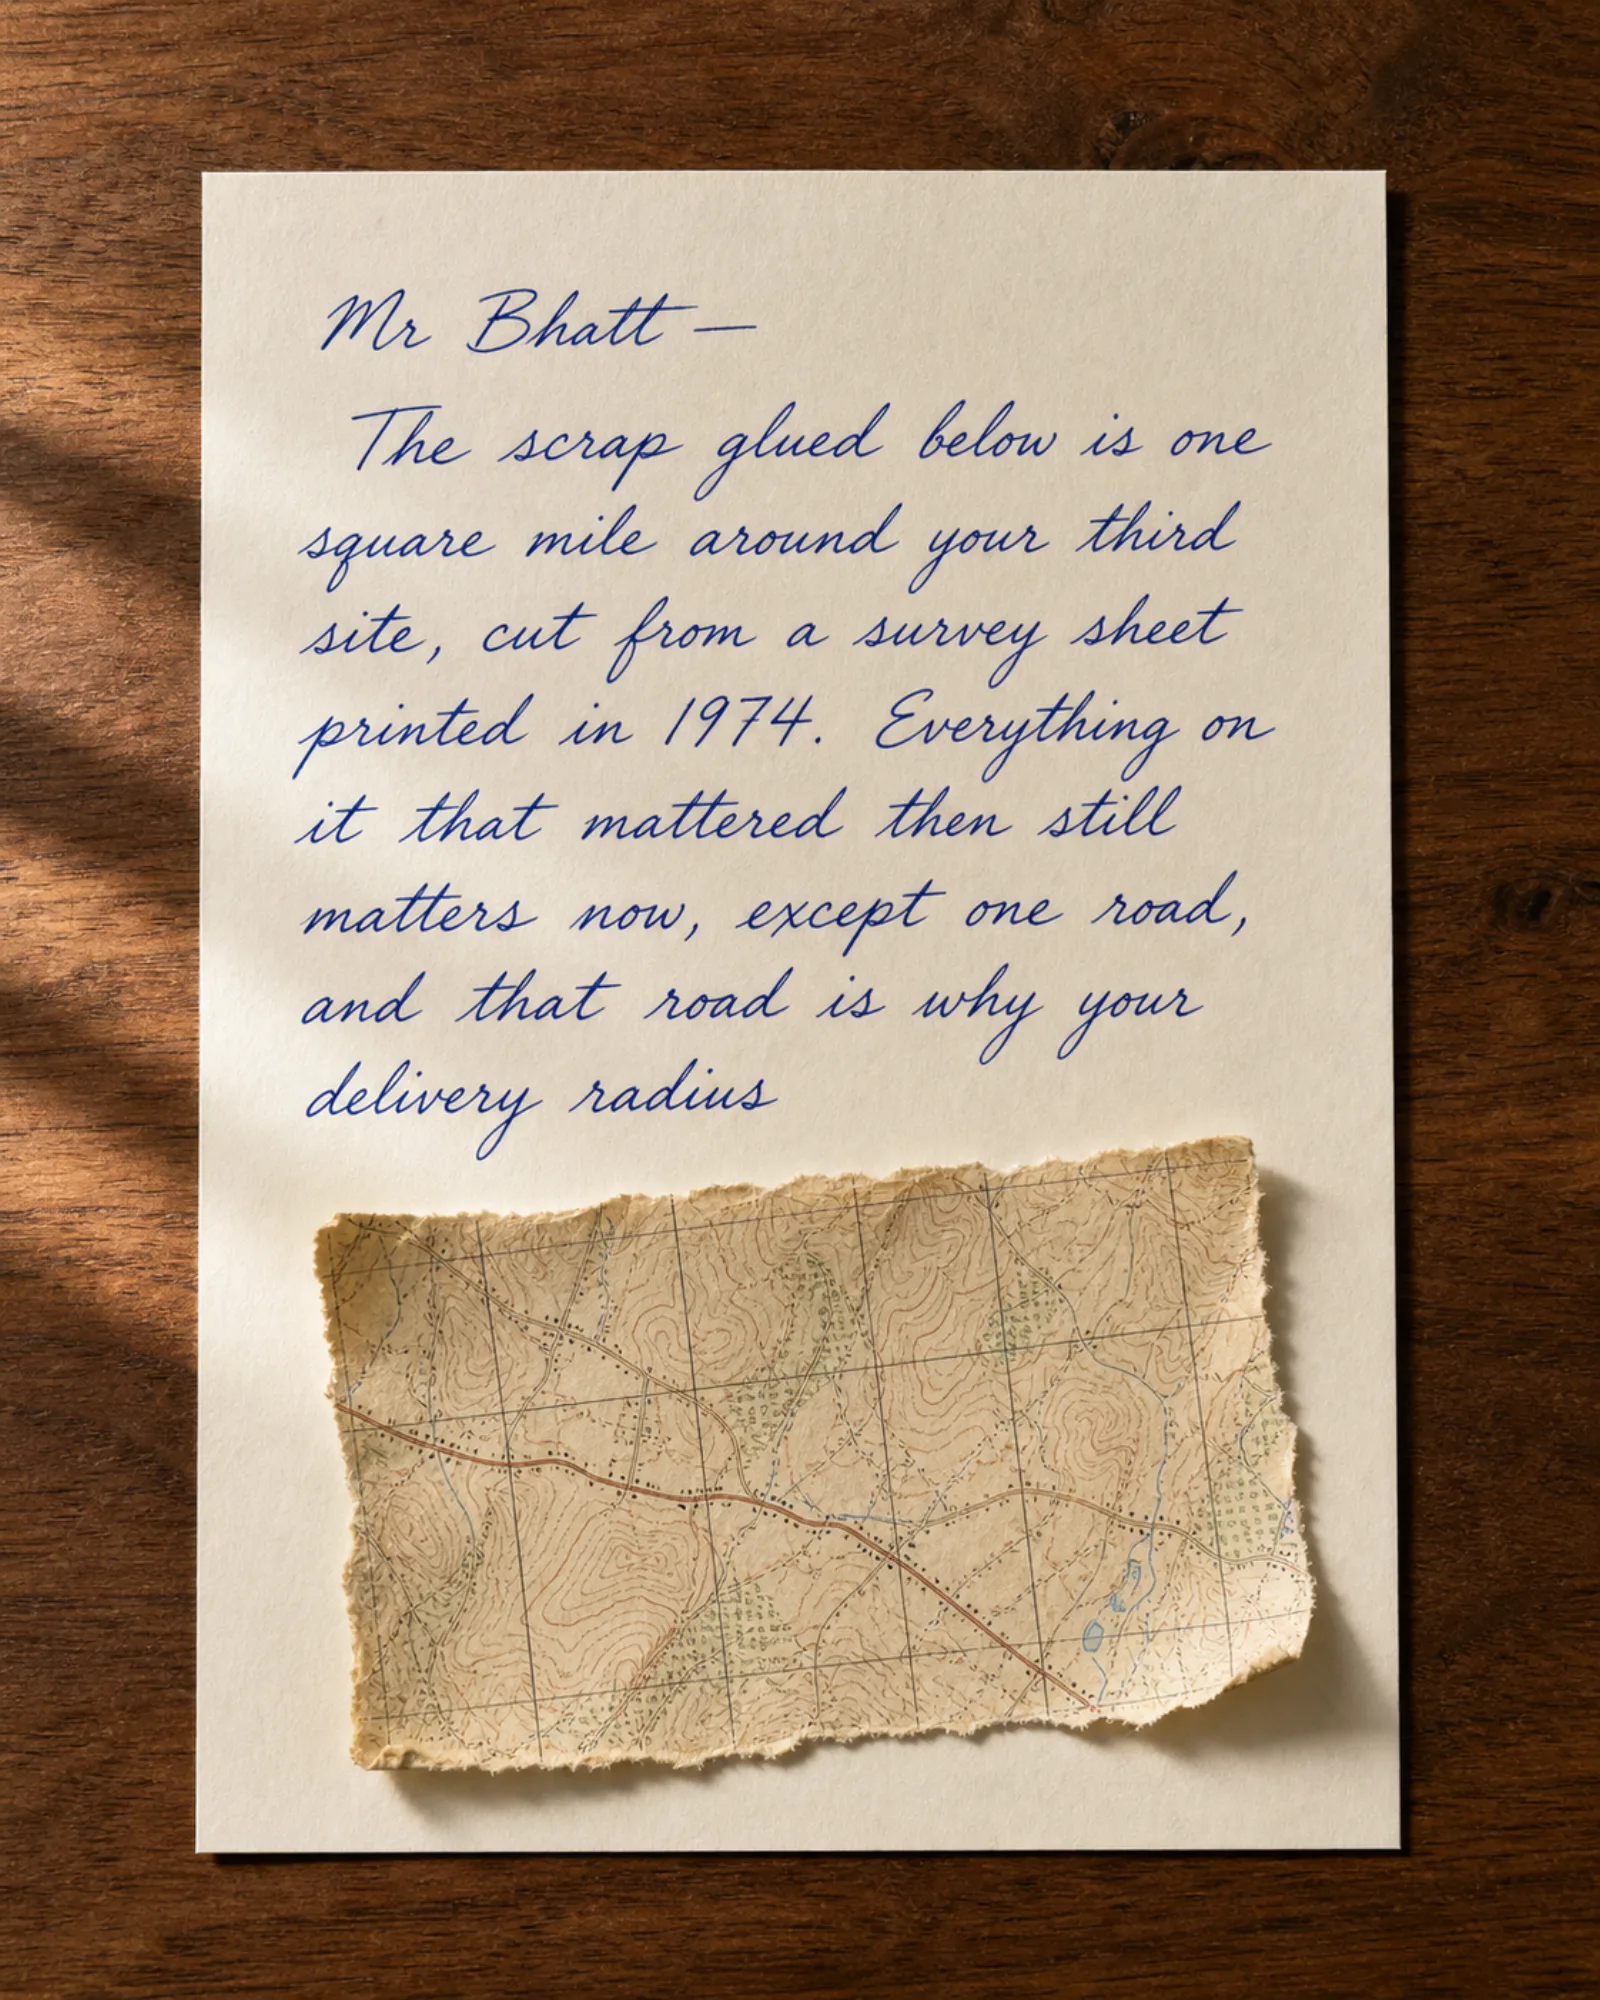 Mr Bhatt —
The scrap glued below is one
square mile around your third
site, cut from a survey sheet
printed in 1974. Everything on
it that mattered then still
matters now, except one road,
and that road is why your
delivery radius